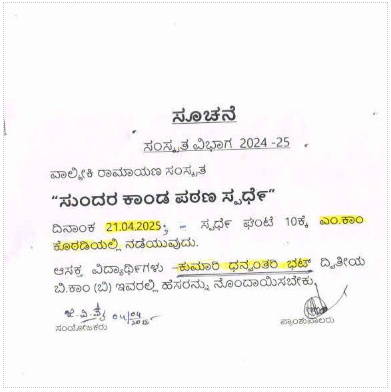 ಸೂಚನೆ
ಸಂಸ್ಕೃತ ವಿಭಾಗ 2024 -25
ವಾಲ್ಮೀಕಿ ರಾಮಾಯಣ ಸಂಸ್ಕೃತ
"ಸುಂದರ ಕಾಂಡ ಪಠಣ ಸ್ಪರ್ಧೆ"
ದಿನಾಂಕ 21.04.2025; - ಸ್ಪರ್ಧೆ ಘಂಟೆ 10ಕ್ಕೆ ಎಂ.ಕಾಂ
ಕೊಠಡಿಯಲ್ಲಿ ನಡೆಯುವುದು.
ಆಸಕ್ತ ವಿದ್ಯಾರ್ಥಿಗಳು ಕುಮಾರಿ ಧನ್ವಂತರಿ ಭಟ್ ದ್ವಿತೀಯ
ಬಿ.ಕಾಂ (ಬಿ) ಇವರಲ್ಲಿ ಹೆಸರನ್ನು ನೊಂದಾಯಿಸಬೇಕು
04/04
ಸಂಯೋಜಕರು ಪ್ರಾಂಶುಪಾಲರು